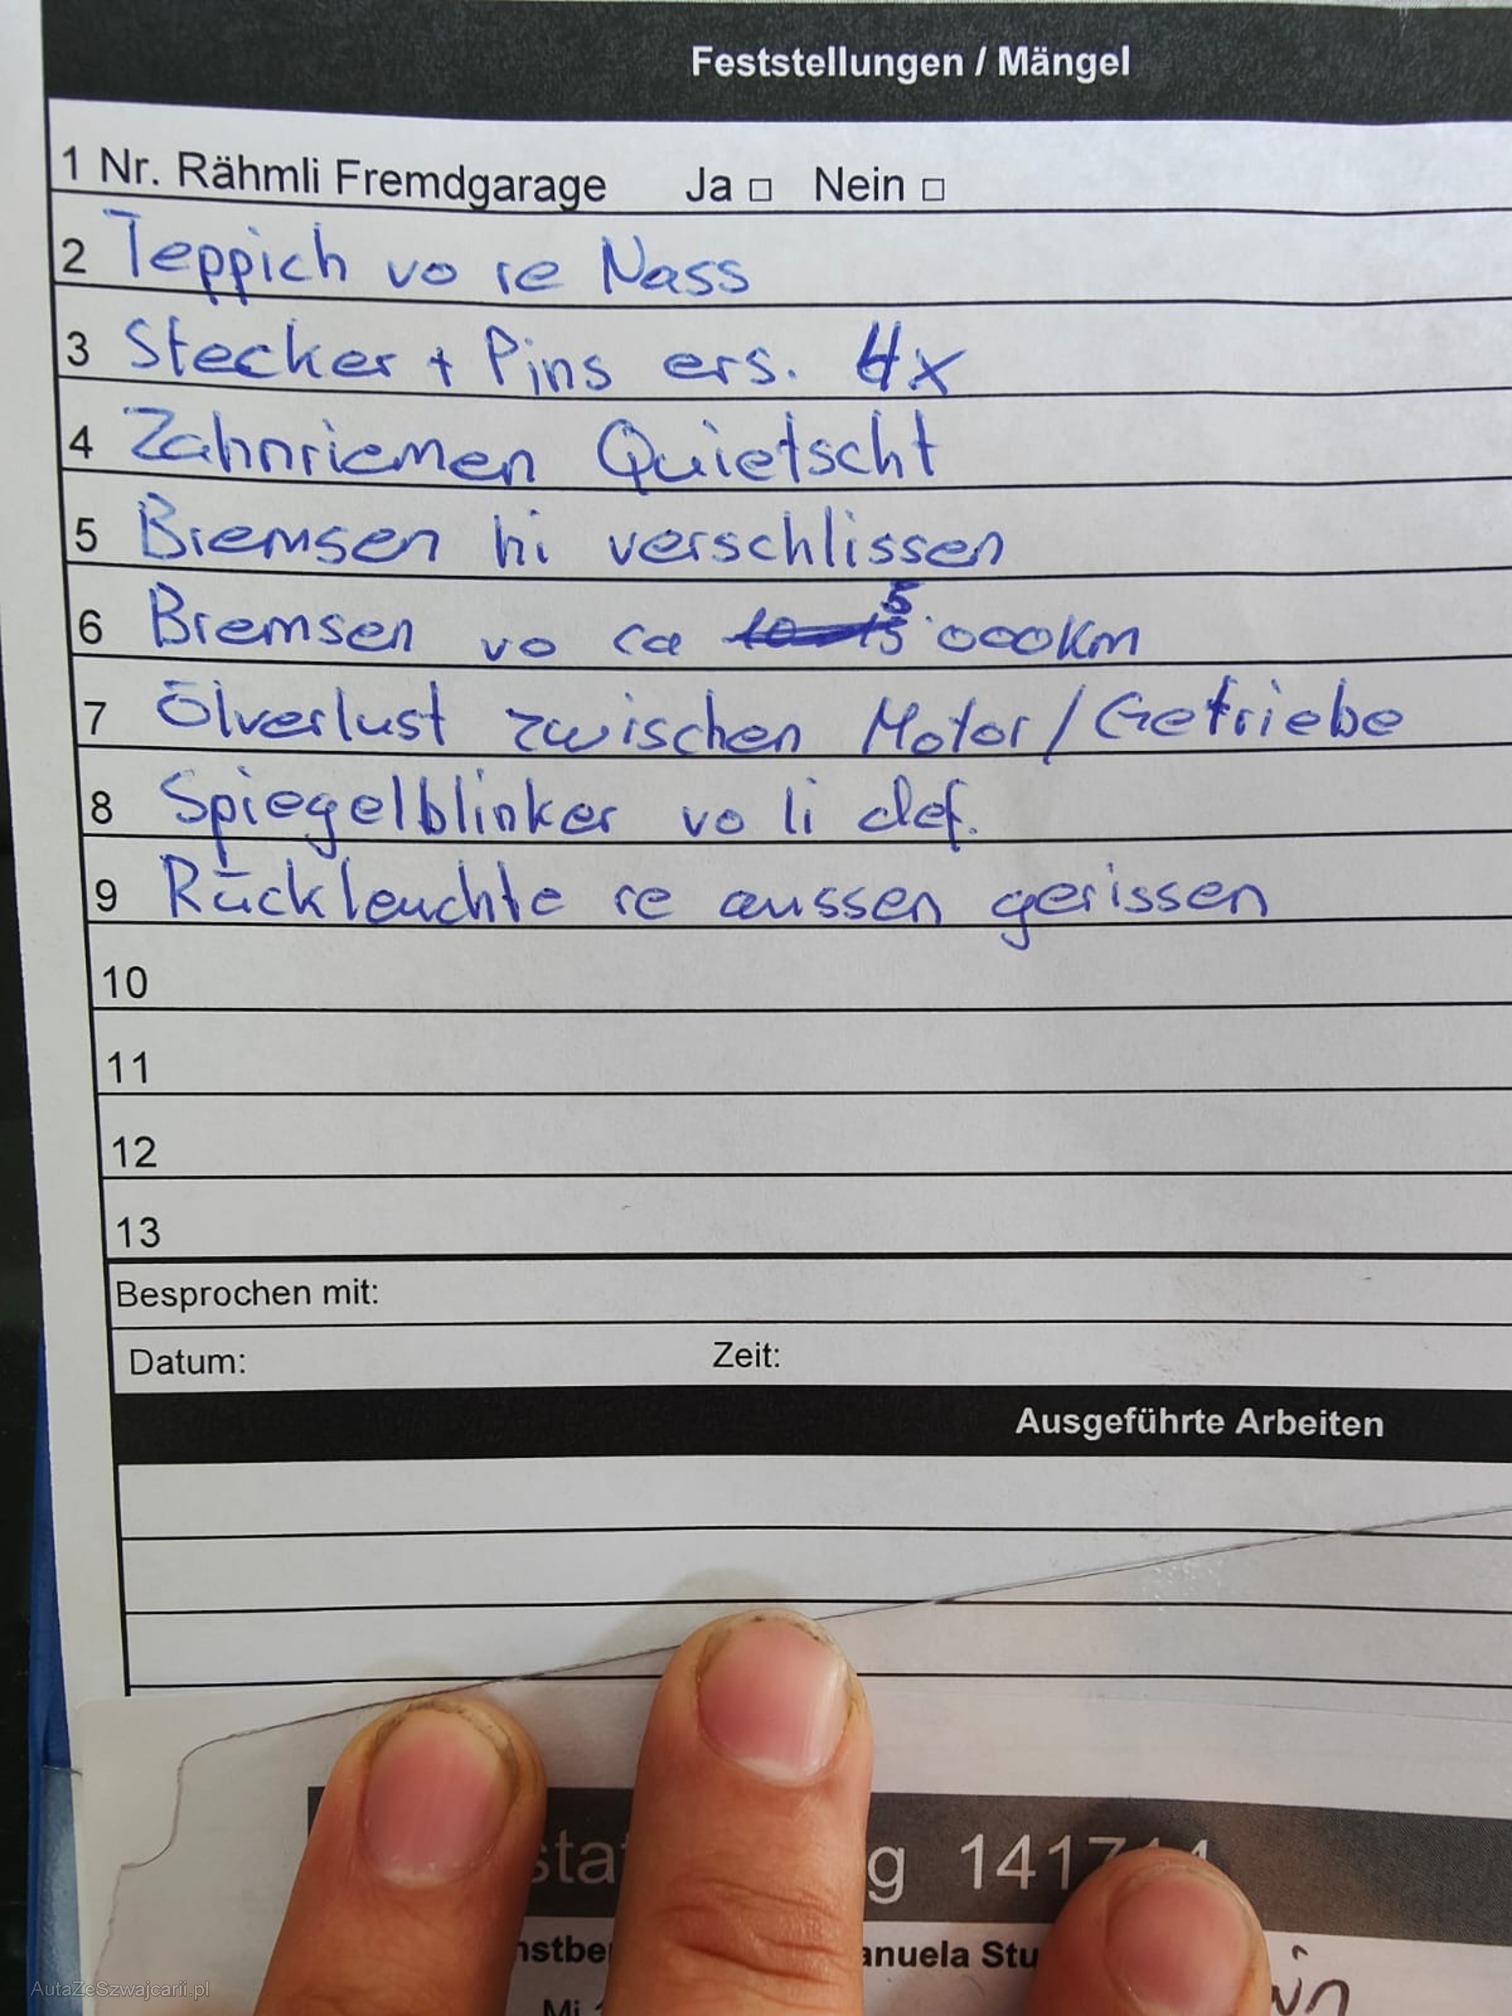 Feststellungen / Mängel
1 Nr. Rähmli Fremdgarage Ja □ Nein □
2 Teppich vo re Nass
3 Stecker + Pins ers. 4x
4 Zahnriemen Quietscht
5 Bremsen hi verschlissen
6 Bremsen vo ca 5'000Km
7 Ölverlust zwischen Motor/Getriebe
8 Spiegelblinker vo li def.
9 Rückleuchte re aussen gerissen
10
11
12
13
Besprochen mit:
Datum: Zeit:
Ausgeführte Arbeiten
AutaZeSzwajcarii.pl